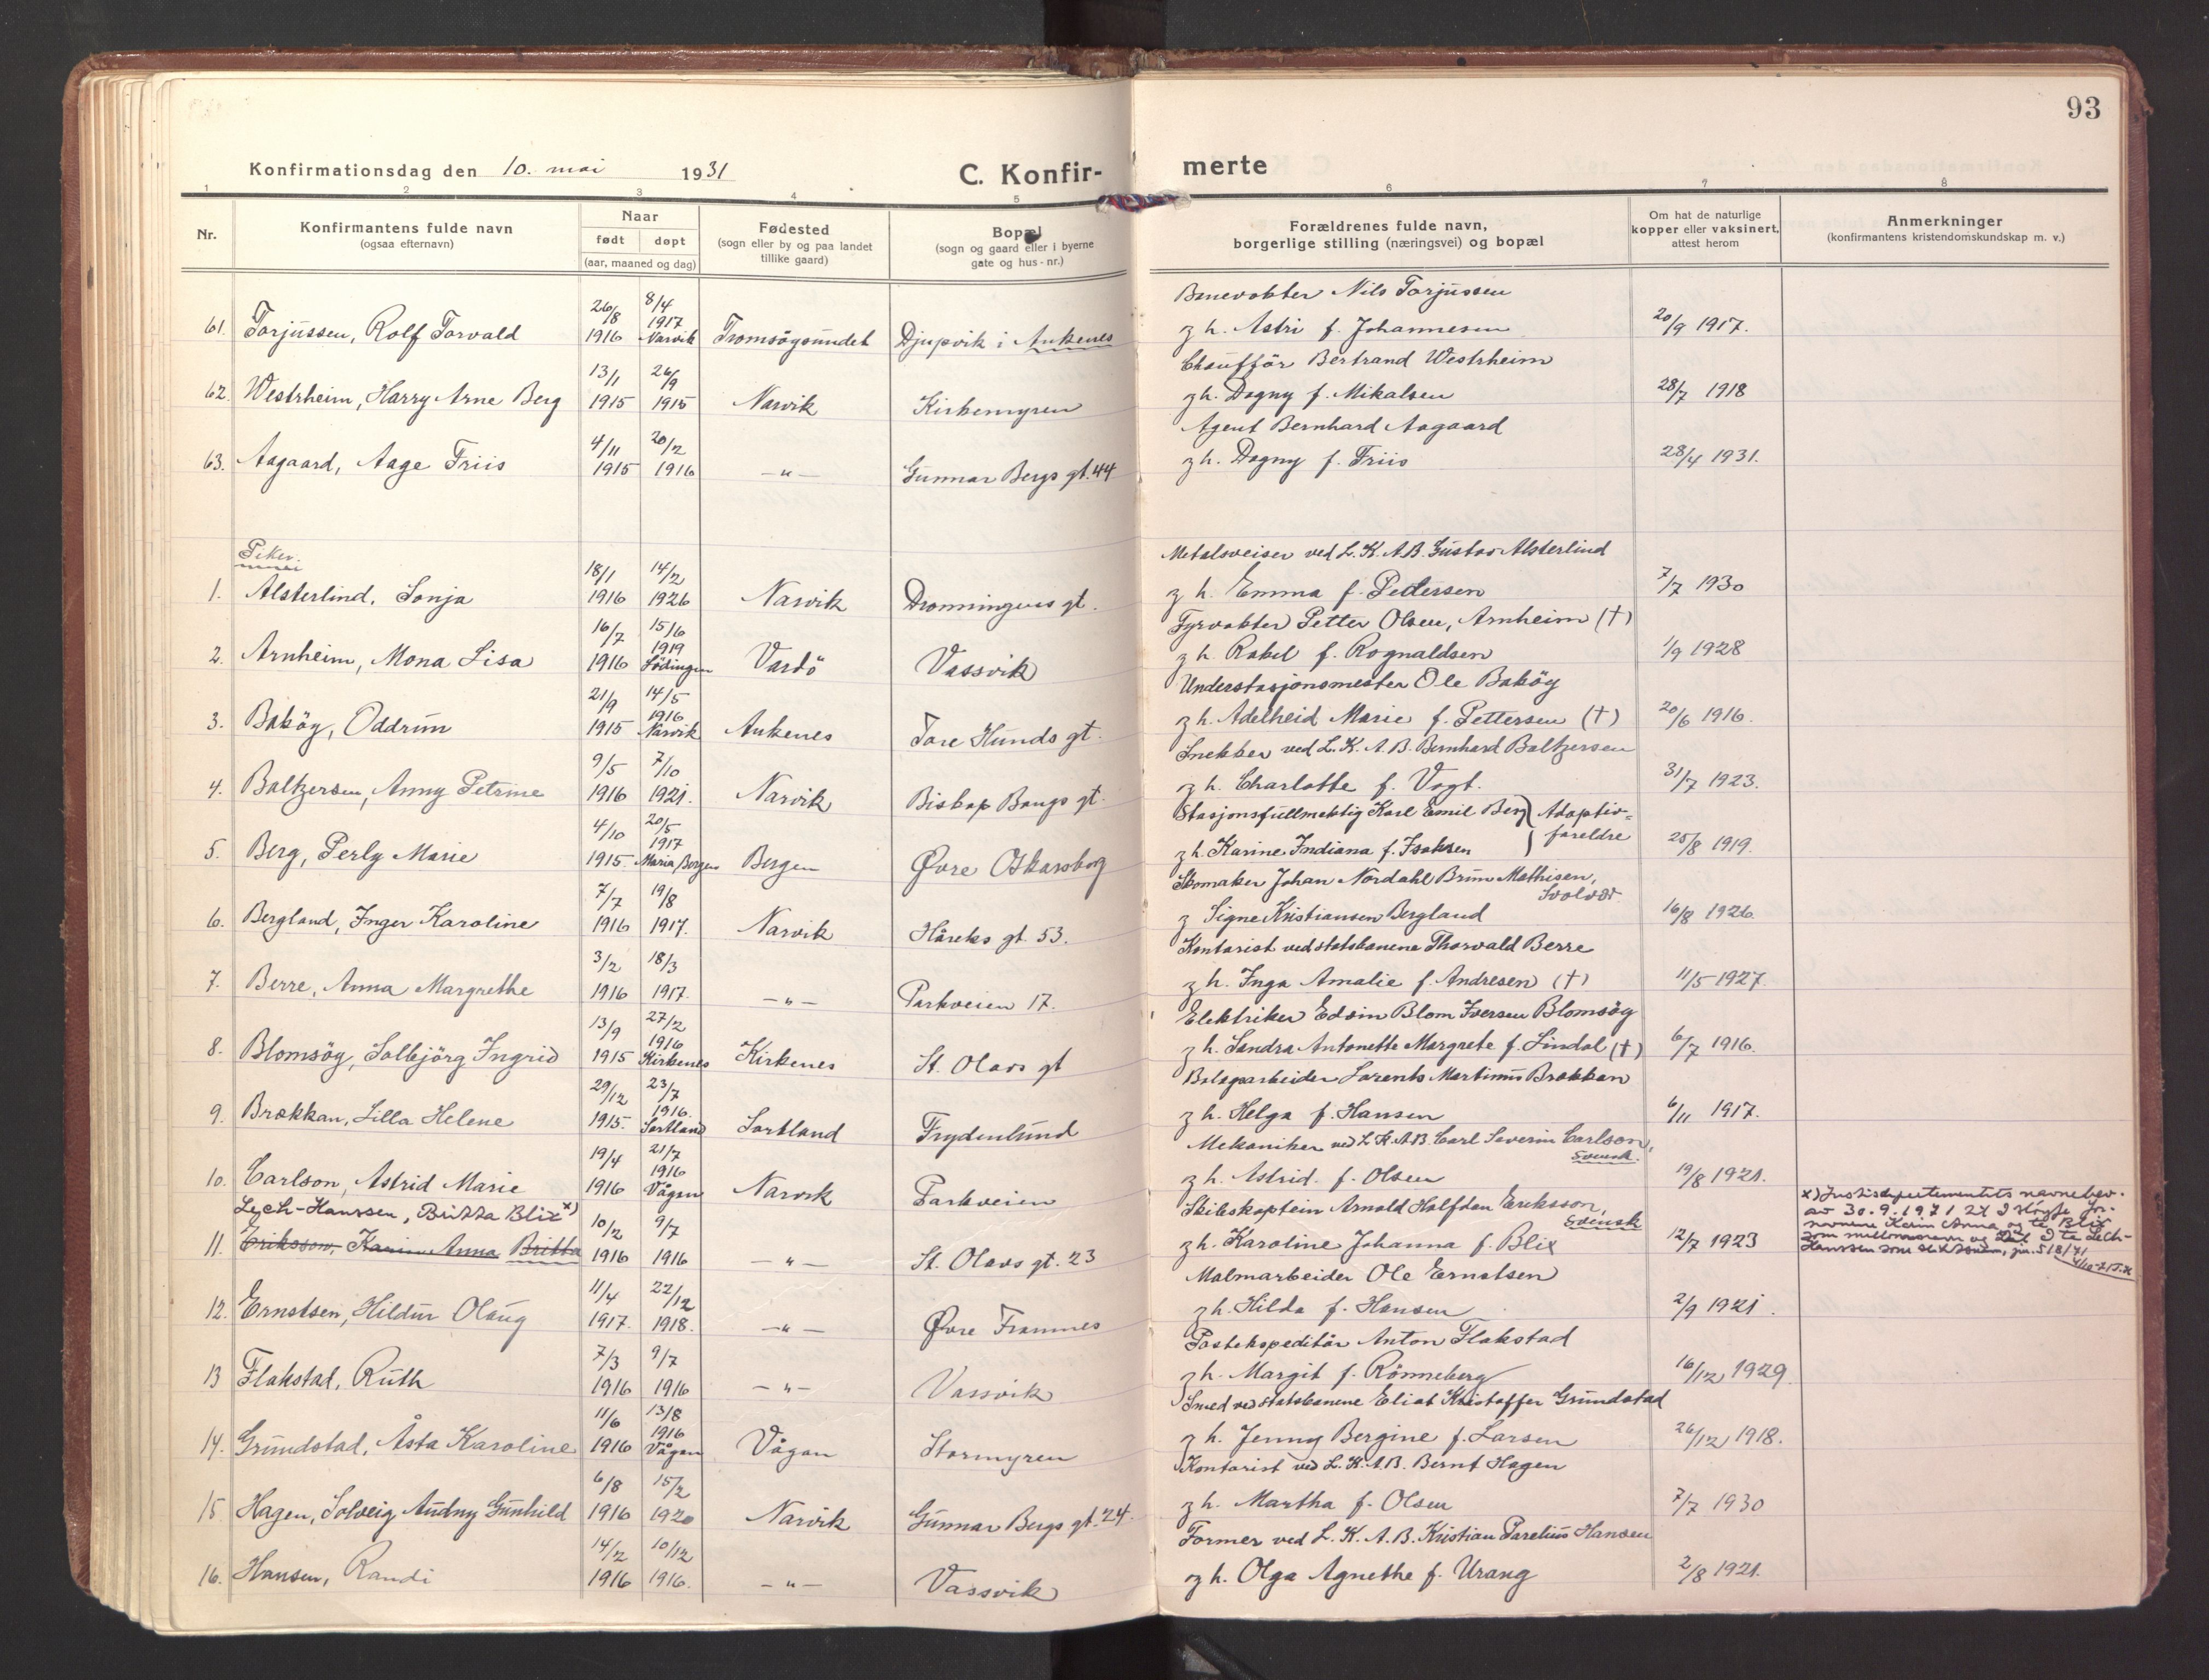 93
Konfirmationsdag den 10. mai 1931
C. Konfir-
merte
1 2 3 4 5 6 7 8
Nr.
Konfirmantens fulde navn
(ogsaa efternavn)
Naar
født døpt
(aar, maaned og dag)
Fødested
(sogn eller by og paa landet
tillike gaard)
Bopæl
(sogn og gaard eller i byerne
gate og hus-nr.)
Forældrenes fulde navn,
borgerlige stilling (næringsvei) og bopæl
Om hat de naturlige
kopper eller vaksinert,
attest herom
Anmerkninger
(konfirmantens kristendomskundskap m. v.)
26/8 8/4 1917 Banevokter Nils Torjussen
61. Torjussen, Rolf Torvald 1916 Narvik Tromsøysundet Djupvik i Ankenes og h. Astri f. Johannesen 20/9 1917.
13/1 26/9 Chauffør Bertrand Westrheim
62. Westrheim, Harry Arne Berg 1915 1915 Narvik Kirkemyren og h. Dagny f. Mikalsen 28/7 1918
4/11 20/2 Agent Bernhard Aagaard
63. Aagaard, Aage Friis 1915 1916 —"— Gunnar Bergs gt. 44 og h. Dagny f. Friis 28/4 1931.
Piker.
18/1 14/2 Metalsveiser ved L.K.A.B. Gustav Alsterlind
1. Alsterlind, Sonja 1916 1926 Narvik Dronningens gt. og h. Emma f. Pettersen 7/7 1930
16/7 15/6 1919 Fyrvokter Petter Olsen, Arnheim (†)
2. Arnheim, Mona Lisa 1916 Lödingen Vardö Vassvik og h. Rakel f. Rognaldsen 1/9 1928
21/9 14/5 1916 Understasjonsmester Ole Baköy
3. Baköy, Oddrun 1915 Narvik Ankenes Tore Hunds gt. og h. Adelheid Marie f. Pettersen (†) 20/6 1916.
9/5 7/10 Snekker ved L.K.A.B. Bernhard Baltzersen
4. Baltzersen, Anny Petrine 1916 1921. Narvik Biskop Bangs gt. og h. Charlotte f. Vogt. 31/7 1923.
4/10 20/5 1917 Stasjonsfullmektig Karl Emil Berg } Adoptiv=
5. Berg, Perly Marie 1915. Maria, Bergen Bergen Øvre Oskarsborg og h. Karine Indiana f. Isaksen } foreldre 25/8 1919.
7/7 19/8 Skomaker Johan Nordahl Brun Mathisen, Svolvær
6. Bergland, Inger Karoline 1916 1917. Narvik Håreks gt. 53. og Signe Kristiansen Bergland 16/8 1926.
3/2 18/3 Kontorist ved statsbanene Thorvald Berre
7. Berre, Anna Margrethe 1916 1917. —"— Parkveien 17. og h. Inga Amalie f. Andresen (†) 11/5 1927.
13/9 27/2 1916 Elektriker Edvin Blom Iversen Blomsöy
8. Blomsöy, Solbjörg Ingrid 1915 Kirkenes Kirkenes St. Olavs gt og h. Sandra Antonette Margrete f. Lindal (†) 6/7 1916.
29/12 23/7 1916. Bolagsarbeider Lorents Martinus Brækkan
9. Brækkan, Lilla Helene 1915. Sortland Sortland Frydenlund og h. Helga f. Hansen 6/11 1917.
19/4 21/7 1916 Mekaniker ved L.K.A.B. Carl Severin Carlson, Svensk.
10. Carlson, Astrid Marie 1916 Vågan Narvik Parkveien og h. Astrid f. Olsen 19/8 1921.
Lech-Hanssen, Britta Blix x) 10/2 9/7 Skibskaptein Arnold Halfdan Eriksson, Svensk
11. Eriksson, Karin Anna Britta 1916 1916 —"— St. Olavs gt. 23 og h. Karoline Johanna f. Blix 12/7 1923
x) Justisdepartementets navnebev.
av 30.9.1971 til å sløyfe for-
navnene Karin Anna og ta Blix
som mellomnavn og å ta Lech-
Hanssen som slektsnavn, jnr. 518/71
11/4 22/12 Malmarbeider Ole Ernstsen
12. Ernstsen, Hildur Olaug 1917. 1918. —"— Øvre Framnes og h. Hilda f. Hansen 2/9 1921.
7/3 9/7 Postekspeditör Anton Flakstad
13 Flakstad, Ruth 1916 1916 —"— Vassvik og h. Margit f. Rönneberg 16/12 1929.
11/6 13/8 1916 Smed ved statsbanene Eliot Kristoffer Grundstad
14. Grundstad, Åsta Karoline 1916 Vågan Vågan Stormyren og h. Jenny Bergine f. Larsen 26/12 1918.
6/8 15/2 Kontorist ved L.K.A.B. Bernt Hagen
15. Hagen, Solveig Audny Gunhild 1916 1920 Narvik Gunnar Bergs gt. 24. og h. Martha f. Olsen 7/7 1930
14/2 10/12 Former ved L.K.A.B. Kristian Parelius Hansen
16. Hansen, Randi 1916 1916. —"— Vassvik og h. Olga Agnethe f. Urang 2/8 1921.